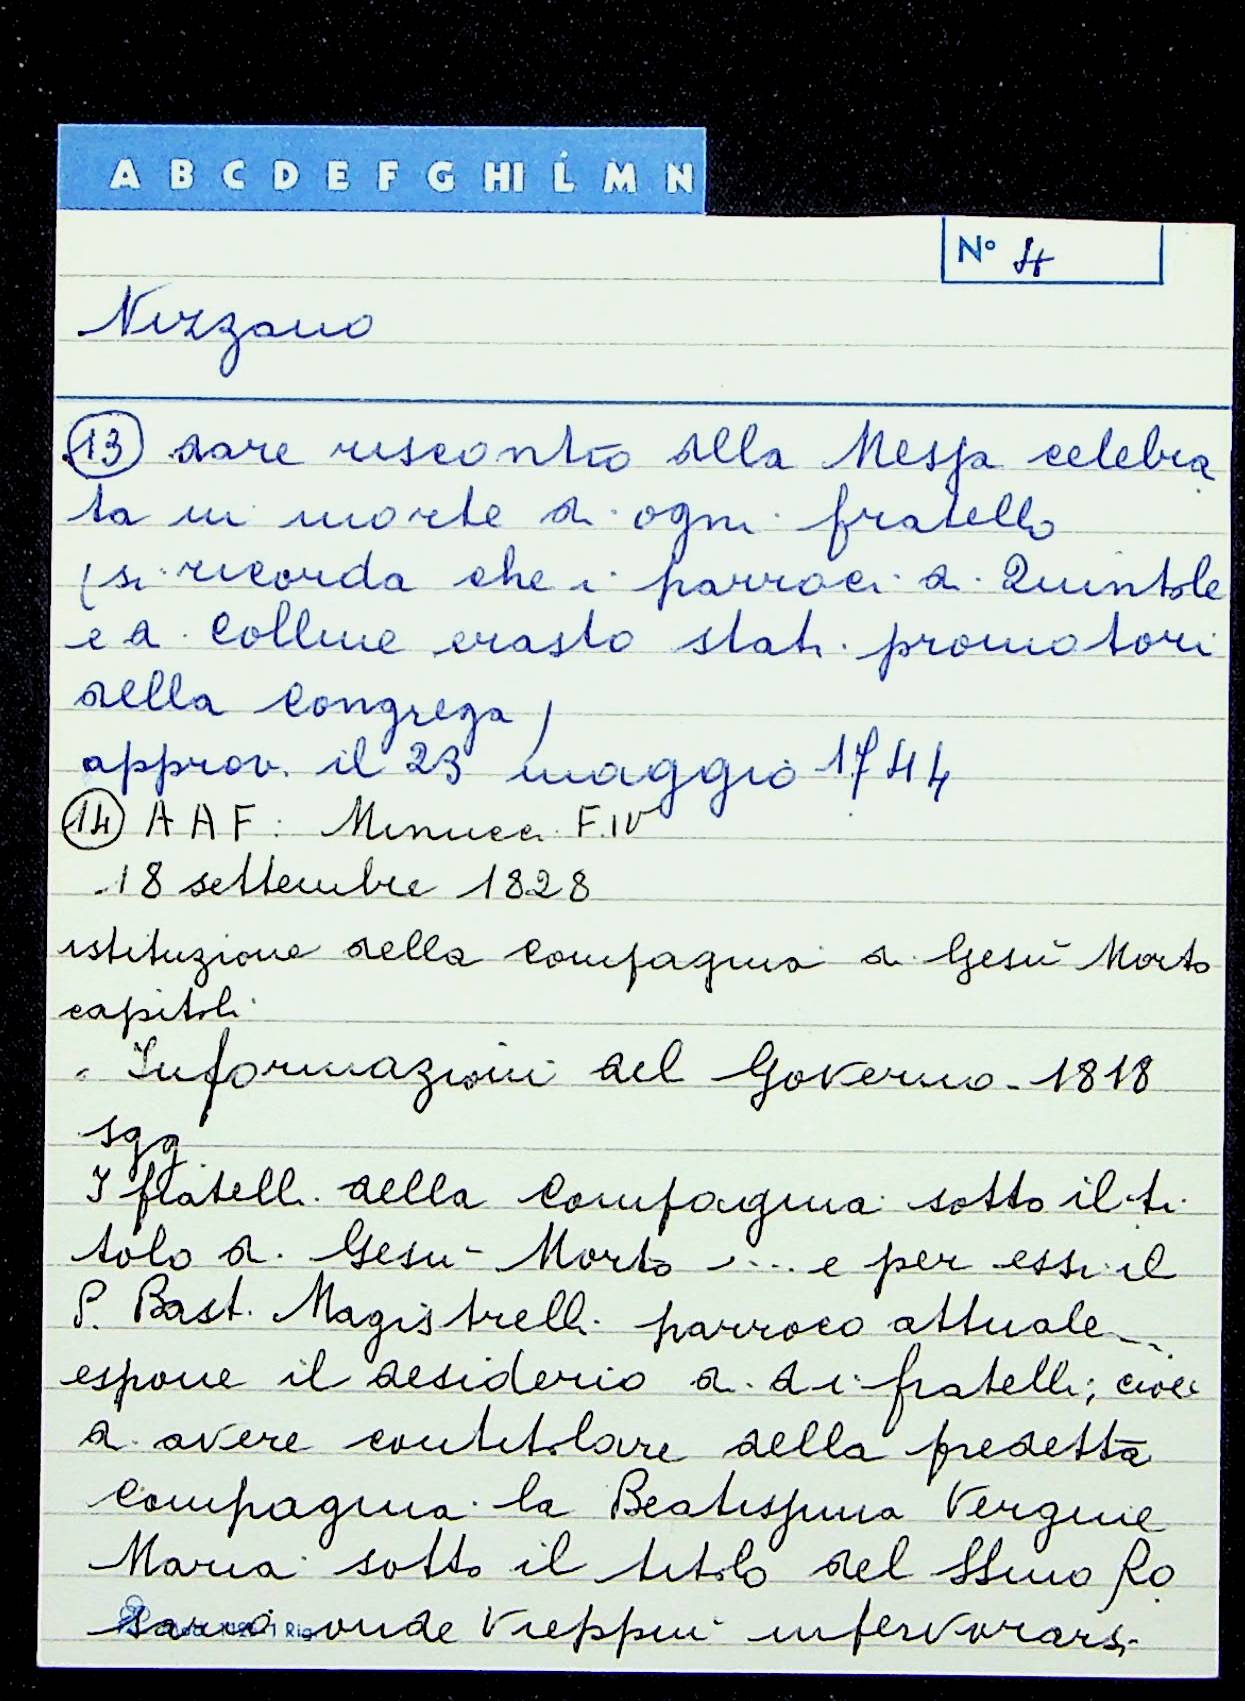 A B C D E F G HI L M N
N° 4
Nizzano
13 dare riscontro alla Messa celebra
ta in morte di ogni fratello
(si ricorda che i parroci di Quintole
e di Colline erasto stati promotori
della Congrega)
approv. il 23 maggio 1744
14 AAF: Minucci F.IV
18 settembre 1828
istituzione della Compagnia di Gesù Morto
capitoli
Informazioni del Governo - 1818
sgg
I fratelli della Compagnia sotto il ti
tolo di Gesù Morto .... e per essi il
P. Bast. Magistrelli parroco attuale ...
espone il desiderio di d i fratelli; cioè
di avere contitolare della predetta
Compagnia la Beatissima Vergine
Maria sotto il titolo del SSmo Ro
sario onde vieppiù infervorarsi